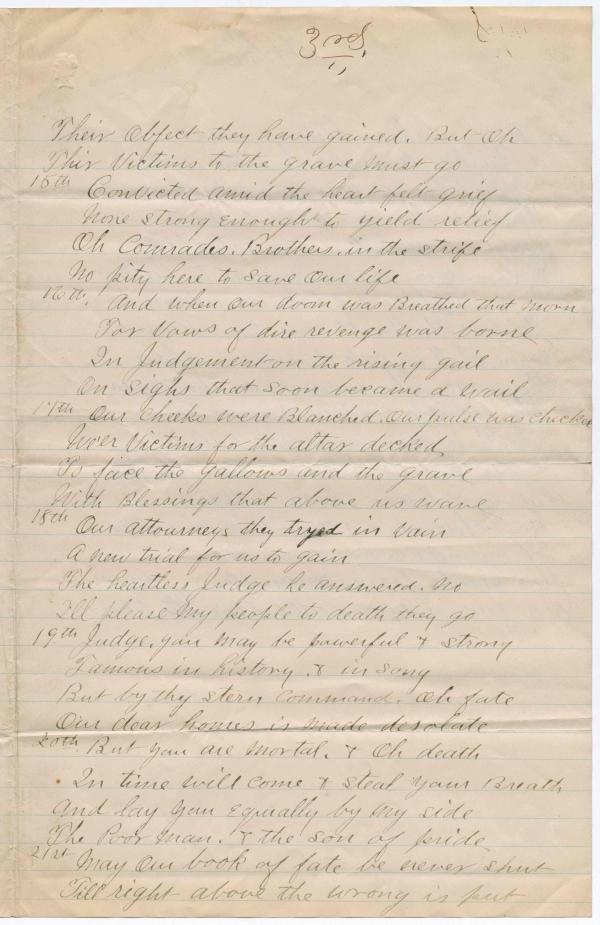 3rd
Their Object they have gained. But Oh
Thir Victims to the grave must go
15th Convicted amid the heart felt grief
None strong enough to yield relief
Oh Comrades. Brothers. in the strife
No pity here to save our life
16th. And when our doom was Breathed that morn
Far Vows of dire revenge was borne
In Judgement on the rising gail
On sighs that soon became a wail
17th Our cheeks were Blanched. Our pulse was checked
Weer Victims for the altar decked
To face the gallows and the grave
With Blessings that above us wave
18th Our attourneys they tryed in Vain
A new trial for us to gain
The heartless Judge he answered. No
Ill please my people to death they go
19th Judge. you may be powerful & strong
Famous in history. & in song
But by thy stern command. Oh fate
Our dear homes is made desolate
20th. But you are mortal. & Oh death
In time will come & steal your Breath
And lay you equally by my side
The Poor man. & the son of pride
21st May Our book of fate be never shut
Till right above the wrong is put